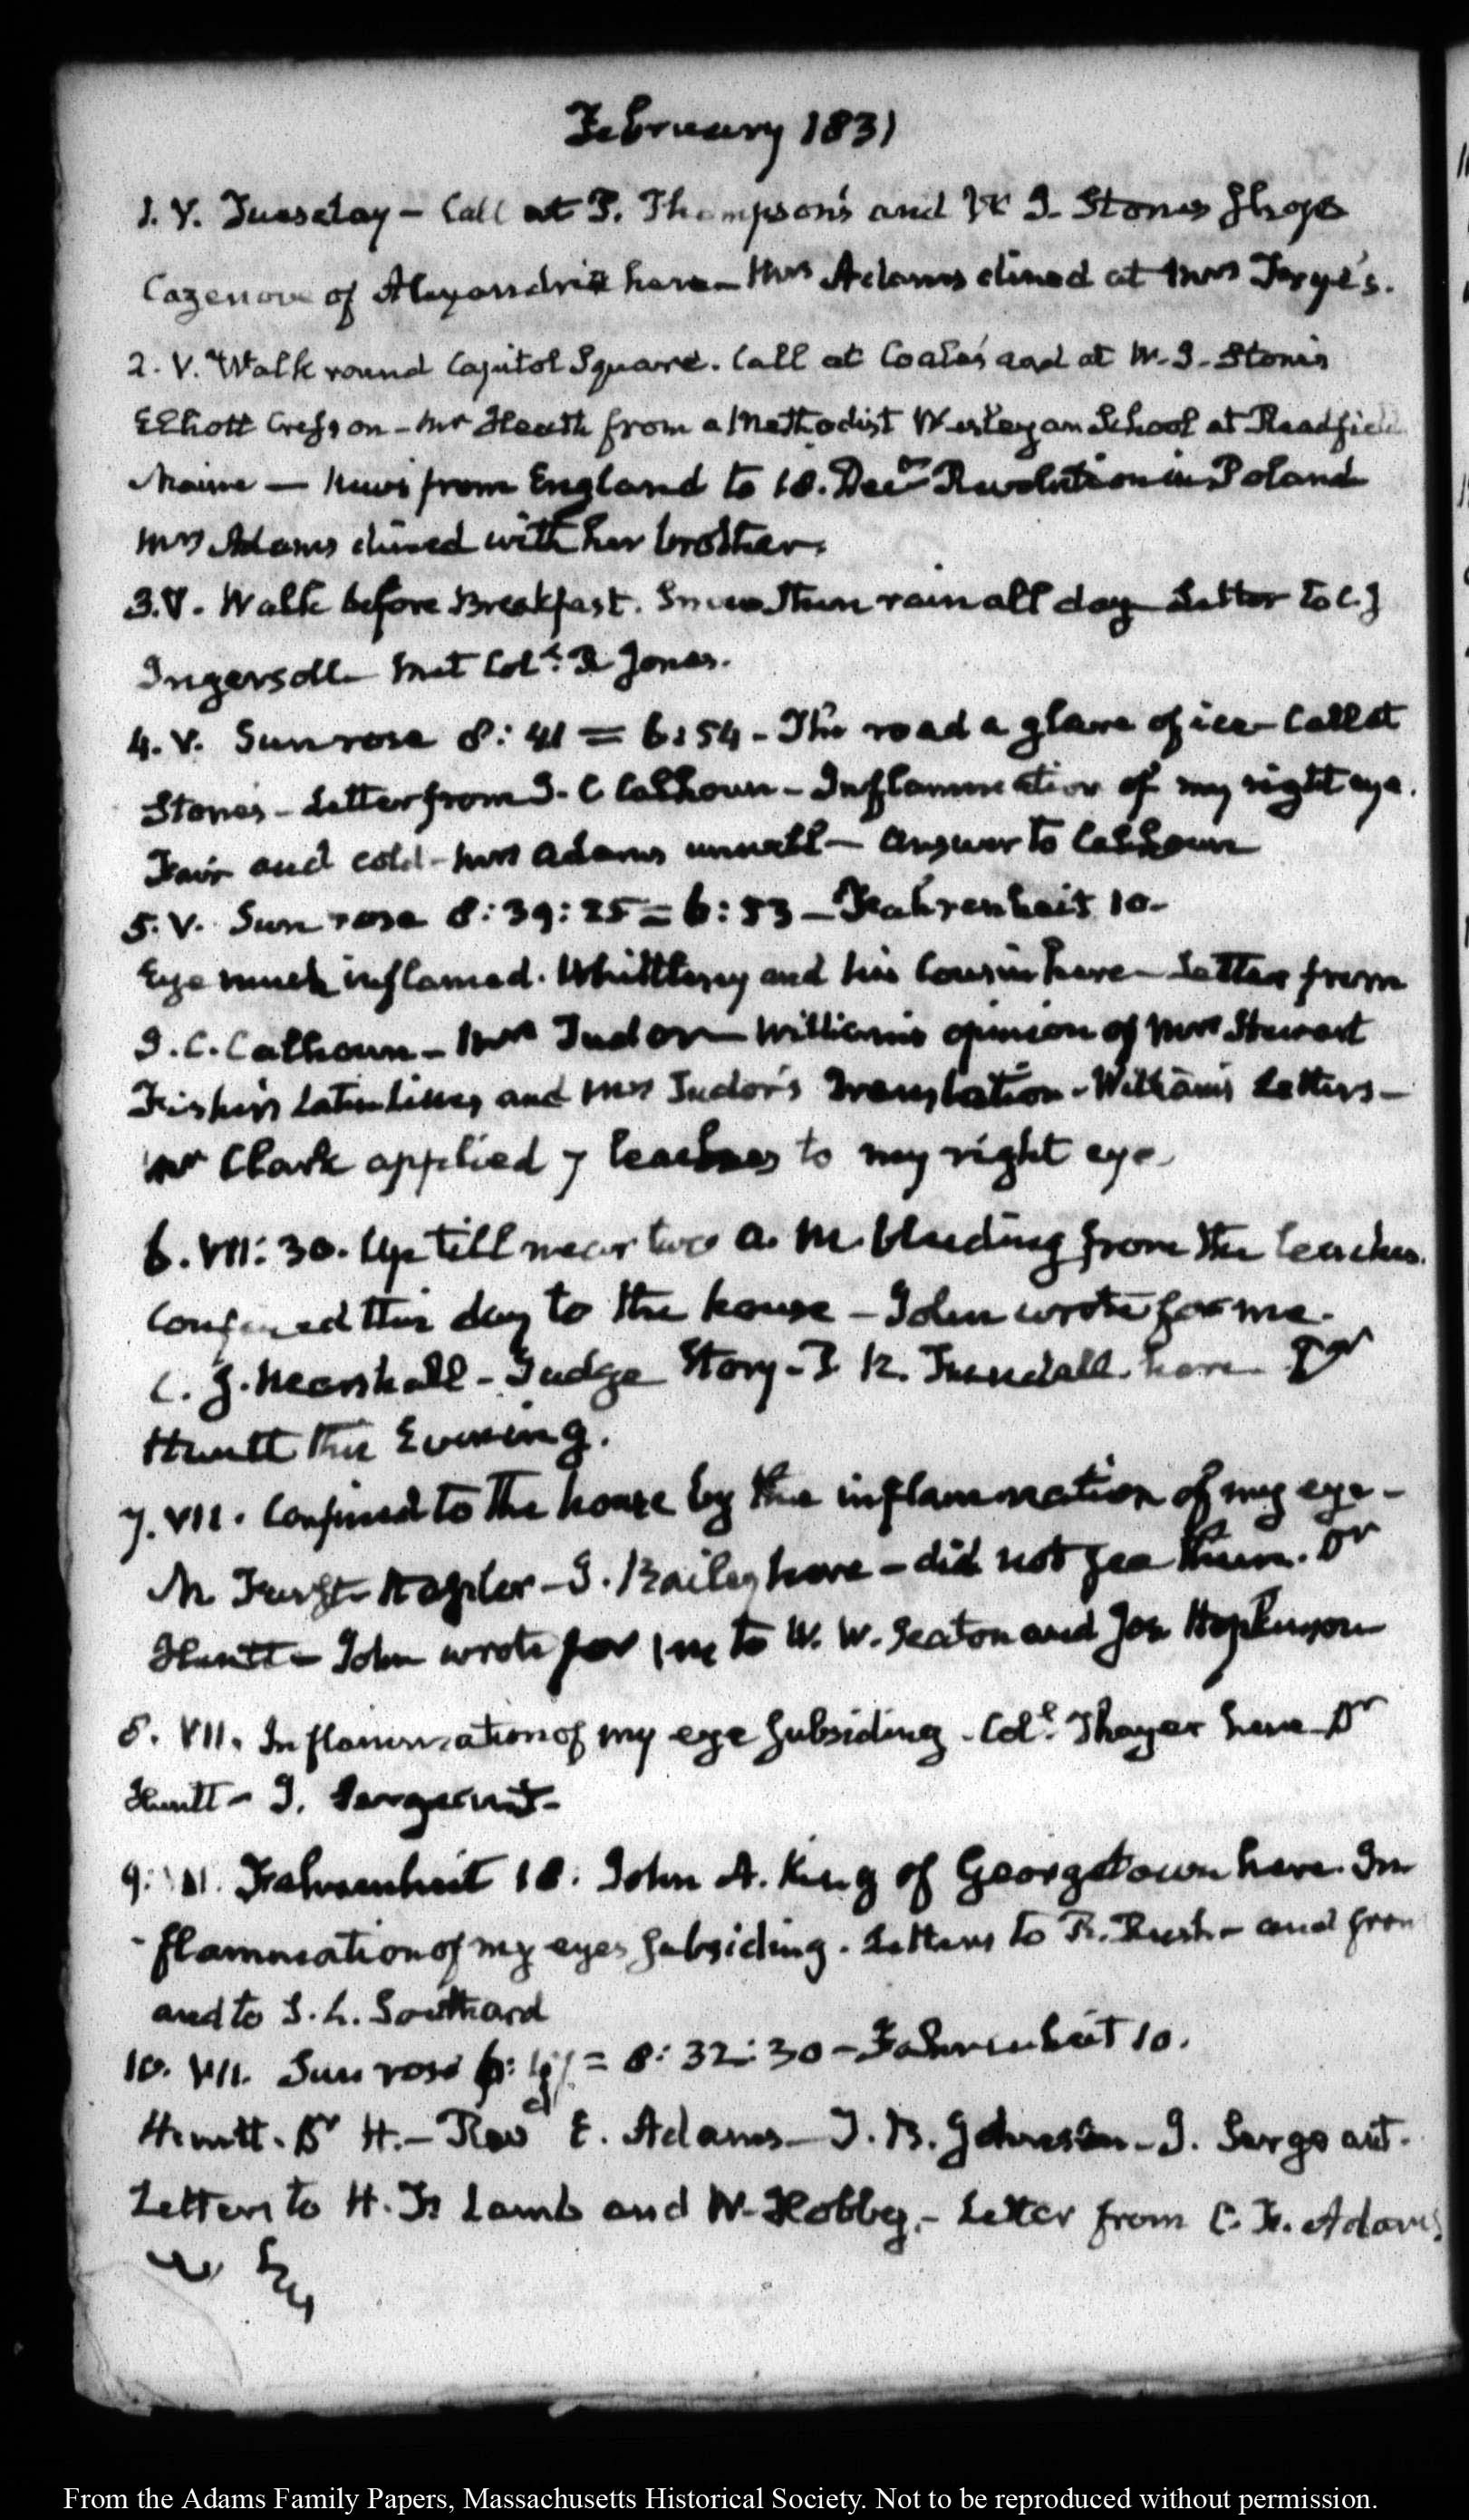 February 1831
1. V. Tuesday – Call at P. Thompson's and W. J. Stone's Shops
Cazenove of Alexandria here – Mrs Adams dined at Mrs Forye's.
2. V. Walk round Capitol Square. Call at Coates's and at W. J. Stone's
Elliott Cresson – Mr Heath from a Methodist Wesleyan School at Readfield
Maine – News from England to 18. Decr Revolution in Poland
Mrs Adams dined with her brother.
3. V. Walk before Breakfast. Snow then rain all day – Letter to C. J
Ingersoll – Met Coll. R Jones.
4. V. Sun rose 8:41 = 6:54 – The road a glare of ice – Call at
Stone's – Letter from J. C Calhoun – Inflammation of my right eye.
Fair and cold – Mrs Adams unwell – Answer to Calhoun
5. V. Sun rose 8:39:25 = 6:53 – Fahrenheit 10 –
Eye much inflamed. Whittlesey and his Cousin here – Letter from
J. C. Calhoun – Mrs Tudor – William's opinion of Mrs Stewart
Latin lines and Mrs Tudor's Translation – William's Letters –
Mr Clark applied 7 leaches to my right eye.
6. VII:30. Up till near two a. m. bleeding from the leaches.
Confined this day to the house – John wrote for me.
C. J. Marshall – Judge Story – T. R. here Dr
Huntt this Evening.
7. VII. Confined to the house by the inflammation of my eye –
M J. Bailey here – did not see them. Dr
Huntt – John wrote for me to W. W. Seaton and Jos. Hopkinson
8. VII. Inflammation of my eye subsiding. Coll. Thayer here – Dr
Huntt – J. Sergeant –
9: VI. Fahrenheit 18. John A. King of Georgetown here. In
-flammation of my eyes subsiding. Letters to R. Rush – and from
and to S. L. Southard
10. VII. Sun rose 6:47 = 8:32:30 – Fahrenheit 10.
Huntt. Dr H. – Revd E. Adams – J. B. Johnston – J. Sergeant.
Letters to H. F. Lamb and W. Hobby. – Letter from C. F. Adams
From the Adams Family Papers, Massachusetts Historical Society. Not to be reproduced without permission.